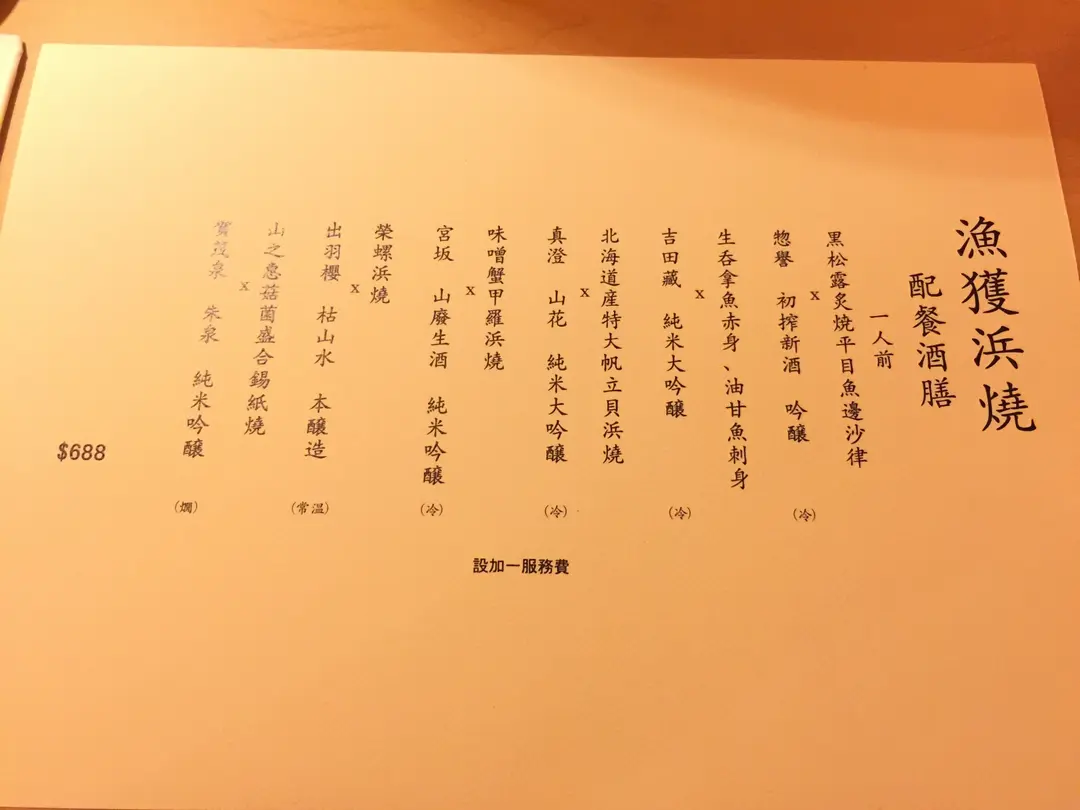 漁獲浜燒
配餐酒膳
一人前
黒松露炙燒平目魚邊沙律
x
惣譽 初搾新酒 吟醸 (冷)
生呑拿魚赤身、油甘魚刺身
x
吉田藏 純米大吟醸 (冷)
北海道産特大帆立貝浜燒
x
真澄 山花 純米大吟醸 (冷)
味噌蟹甲羅浜燒
x
宮坂 山廢生酒 純米吟醸 (冷)
榮螺浜燒
x
出羽櫻 枯山水 本醸造 (常温)
山之惠菇菌盛合錫紙燒
x
賀茂泉 朱泉 純米吟醸 (燗)
$688
設加一服務費